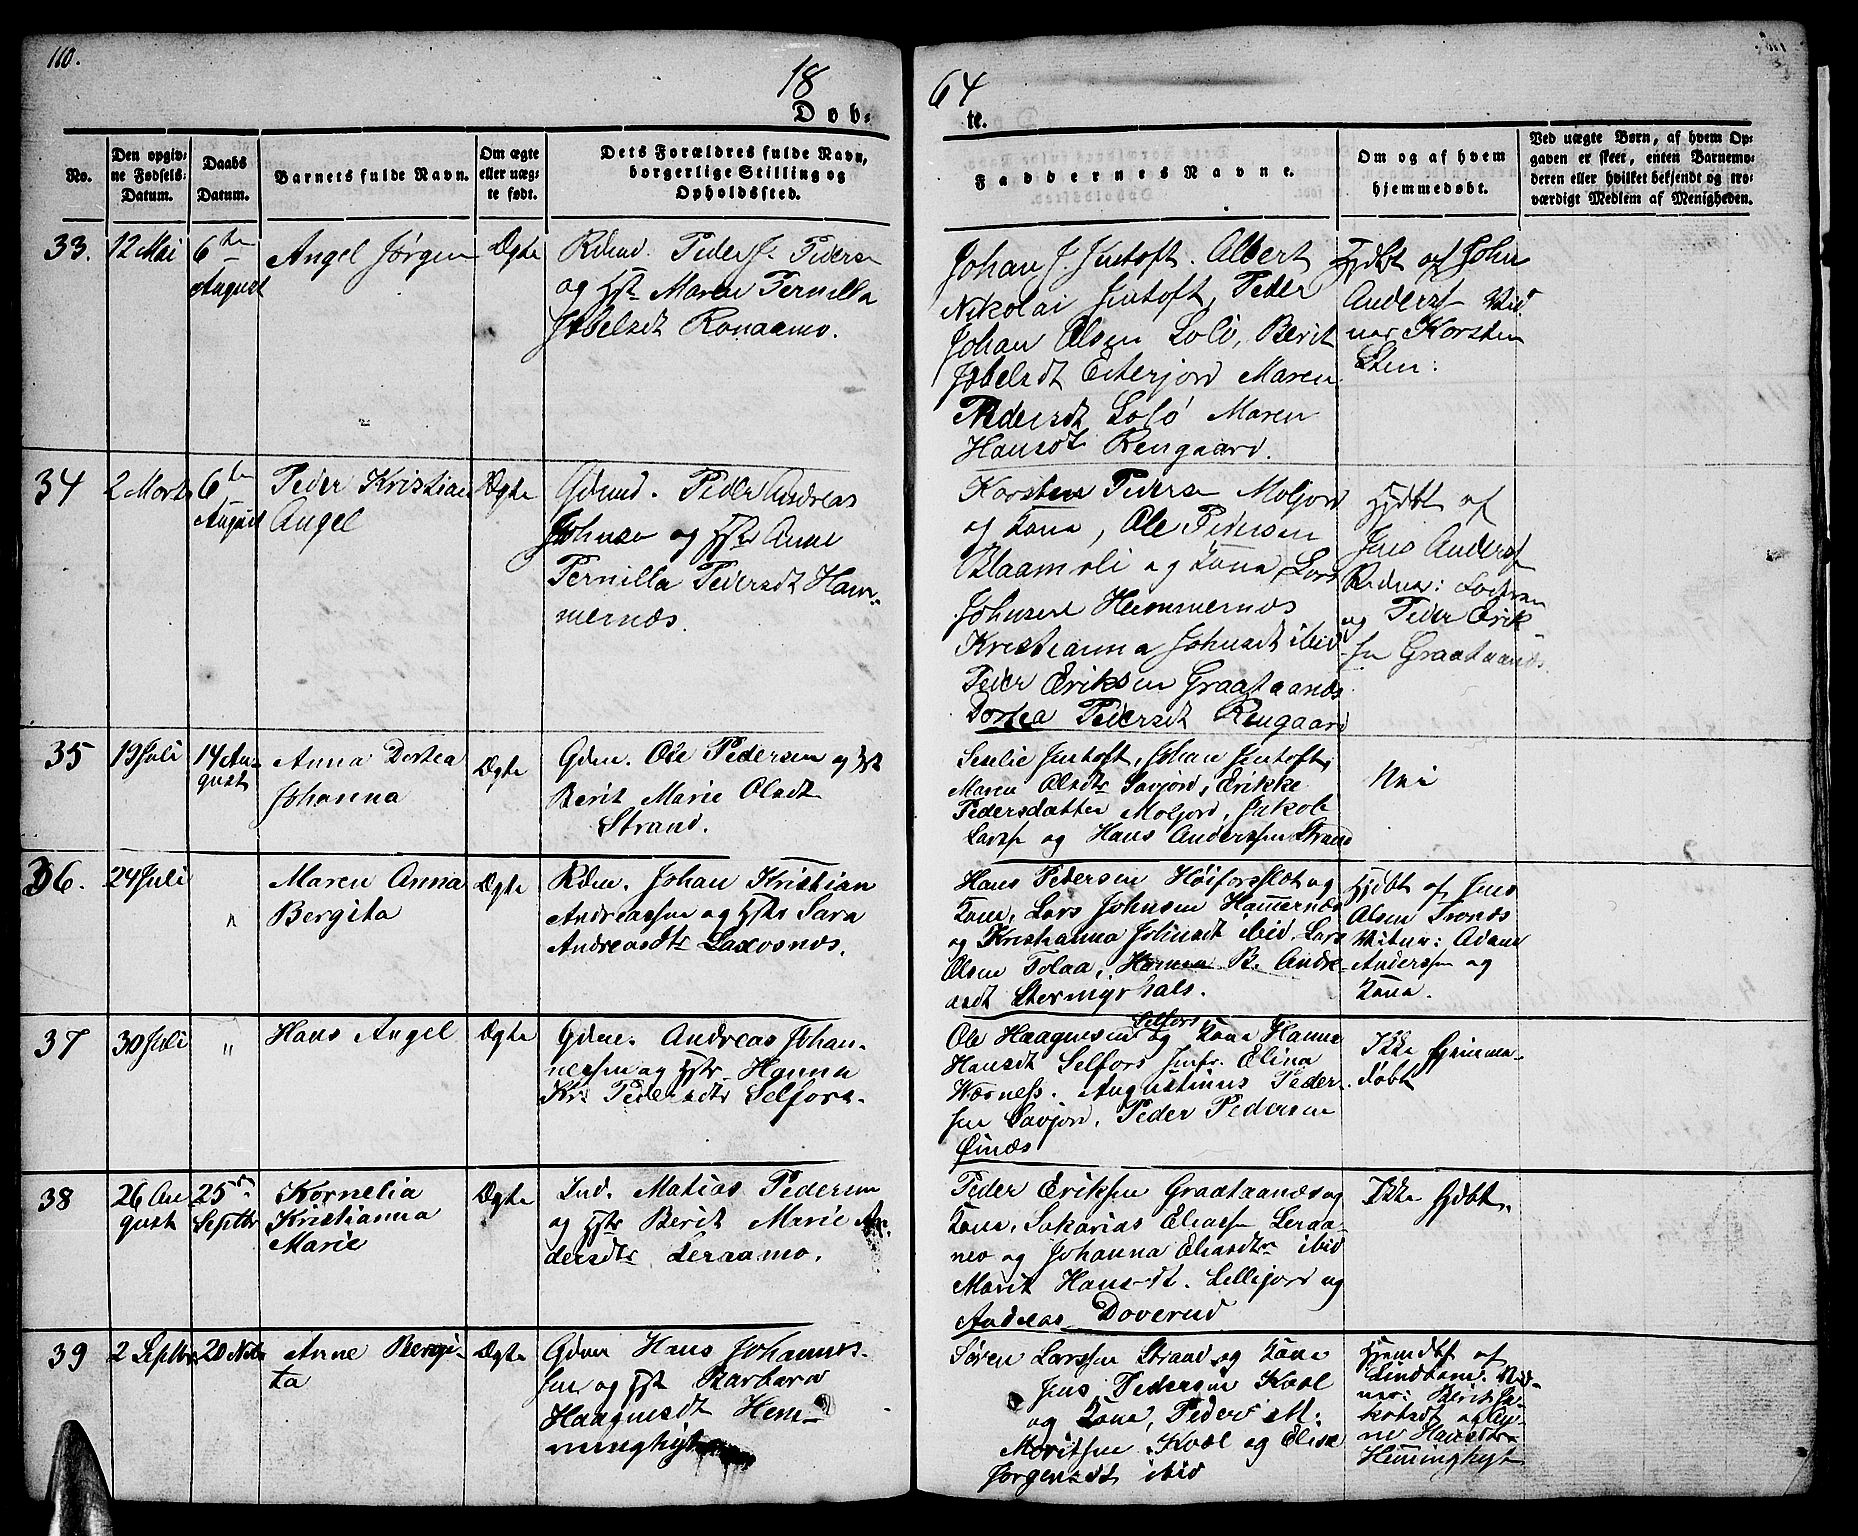 110.
18
64
Dob-
te.
No.
Den opgiv-
ne Fødsels-
Datum.
Daabs
Datum.
Barnets fulde Navn.
Om ægte
eller uæg-
te født.
Dets Forældres fulde Navn,
borgerlige Stilling og
Opholdssted.
Faddernes Navne.
Om og af hvem
hjemmedøbt.
Ved uægte Børn, af hvem Op-
gaven er skeet, enten Barnemo-
deren eller hvilket bekjendt og tro-
værdigt Medlem af Menigheden.
33.
12 Mai
6te
August
Angel Jørgen
Ægte
Peder J. Peders
og Hst Maren Pernilla
Jobelsdt Ronaamo.
Johan J. Jentoft. Albert
Nikolai Jentoft, Peder
Johan Olsen Solö, Berit
Jobelsdt Eiterjord Maren
Pedersdt Solö Maren
Hansdt Rengaard.
Hjdbt af John
Anders Vid
ner Korsten
Sten:
34
2 Marts
6te
August
Peder Kristian
Angel
Ægte
Gdmd. Peder Andreas
Johnsen og Hstr Anne
Pernilla Pedersdt Ham-
mernæs.
Korsten Peders Moljord
og Kona, Ole Pedersen
Blaamoli og Kona, Lars
Johnsen Hammernæs
Kristianna Johnsdt ibid
Peder Eriksen Graataanæs
Dortea Pedersdt Rengaard
Hjdbt af
Jens Anders
og Peder Erik
sen Graataanæs
35
19 Juli
14 Au-
gust
Anna Dortea
Johanna
Ægte
Gdm. Ole Pedersen og Hst
Berit Marie Olsdt
Strand.
Seselie Jentoft, Johan Jentoft,
Maren Olsdtr Savjord, Erikke
Pedersdatter Moljord, Jakob
Larss og Hans Anderssen Strand
Nei
36.
24 Juli
"
Maren Anna
Bergita
Ægte
Johan Kristian
Andreassen og Hstr Sara
Andreasdtr Laxosnæs.
Hans Pedersen Höiforsslet og
Kone, Lars Johnsen Hamernæs
og Kristianna Johnsdt ibid. Lars
Olsen Tolaa, Hanna B. Andre
asdt Stormyrhals.
Hjdbt af Jens
Olsen Trones
Vitner: Adam
Anderssen og
Kona.
37
30 Juli
"
Hans Angel
Ægte
Gdm. Andreas Johan-
nessen og Hstr Hanna
Kr. Pedersdtr Selfors.
Selfors
Ole Haagensen og Kona Hanna
Hansdt Selfors Jmfr. Elina
Wærness. Augustinus Peder-
sen Savjord, Peder Pedersen
Øinæs
Ikke hjemme-
döbt
38
26 Au
gust
25de
Septbr
Kornelia
Kristianna
Marie
Ægte
Ind. Matias Pedersen
og Hstr Berit Marie An-
dersdtr Leraamo.
Peder Eriksen Graataanæs og
Kona. Sakarias Eliassen Leraa-
mo og Johanna Eliasdtr ibid
Marit Hansdt. Lillejord og
Andreas Doverud
Ikke hjdbt.
39
2 Septbr
20 Novbr
Anne Bergi-
ta
Ægte
Gdm Hans Johannes-
sen og Hst Barbara
Haagensdt Hem-
Sören Larssen Strand og Kone
Jens Pedersen Kvæl
og Kona, Peder M.
Moritsen Kvæl og Elise
Jörgensdt ibid
Hjemdbt af
Berit Ja-
kobsdt og An-
ne Hansdtr
Hemminghyt